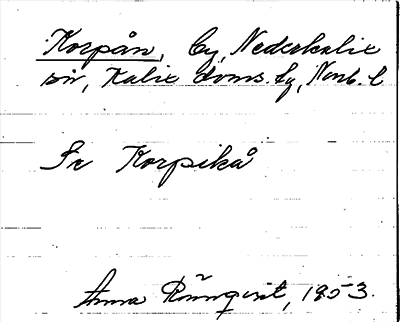 Korpån, by, Nederkalix
sn, Kalix doms. sg, Norrb. l
Se Korpikå
Anna Rönnqvist, 1953.